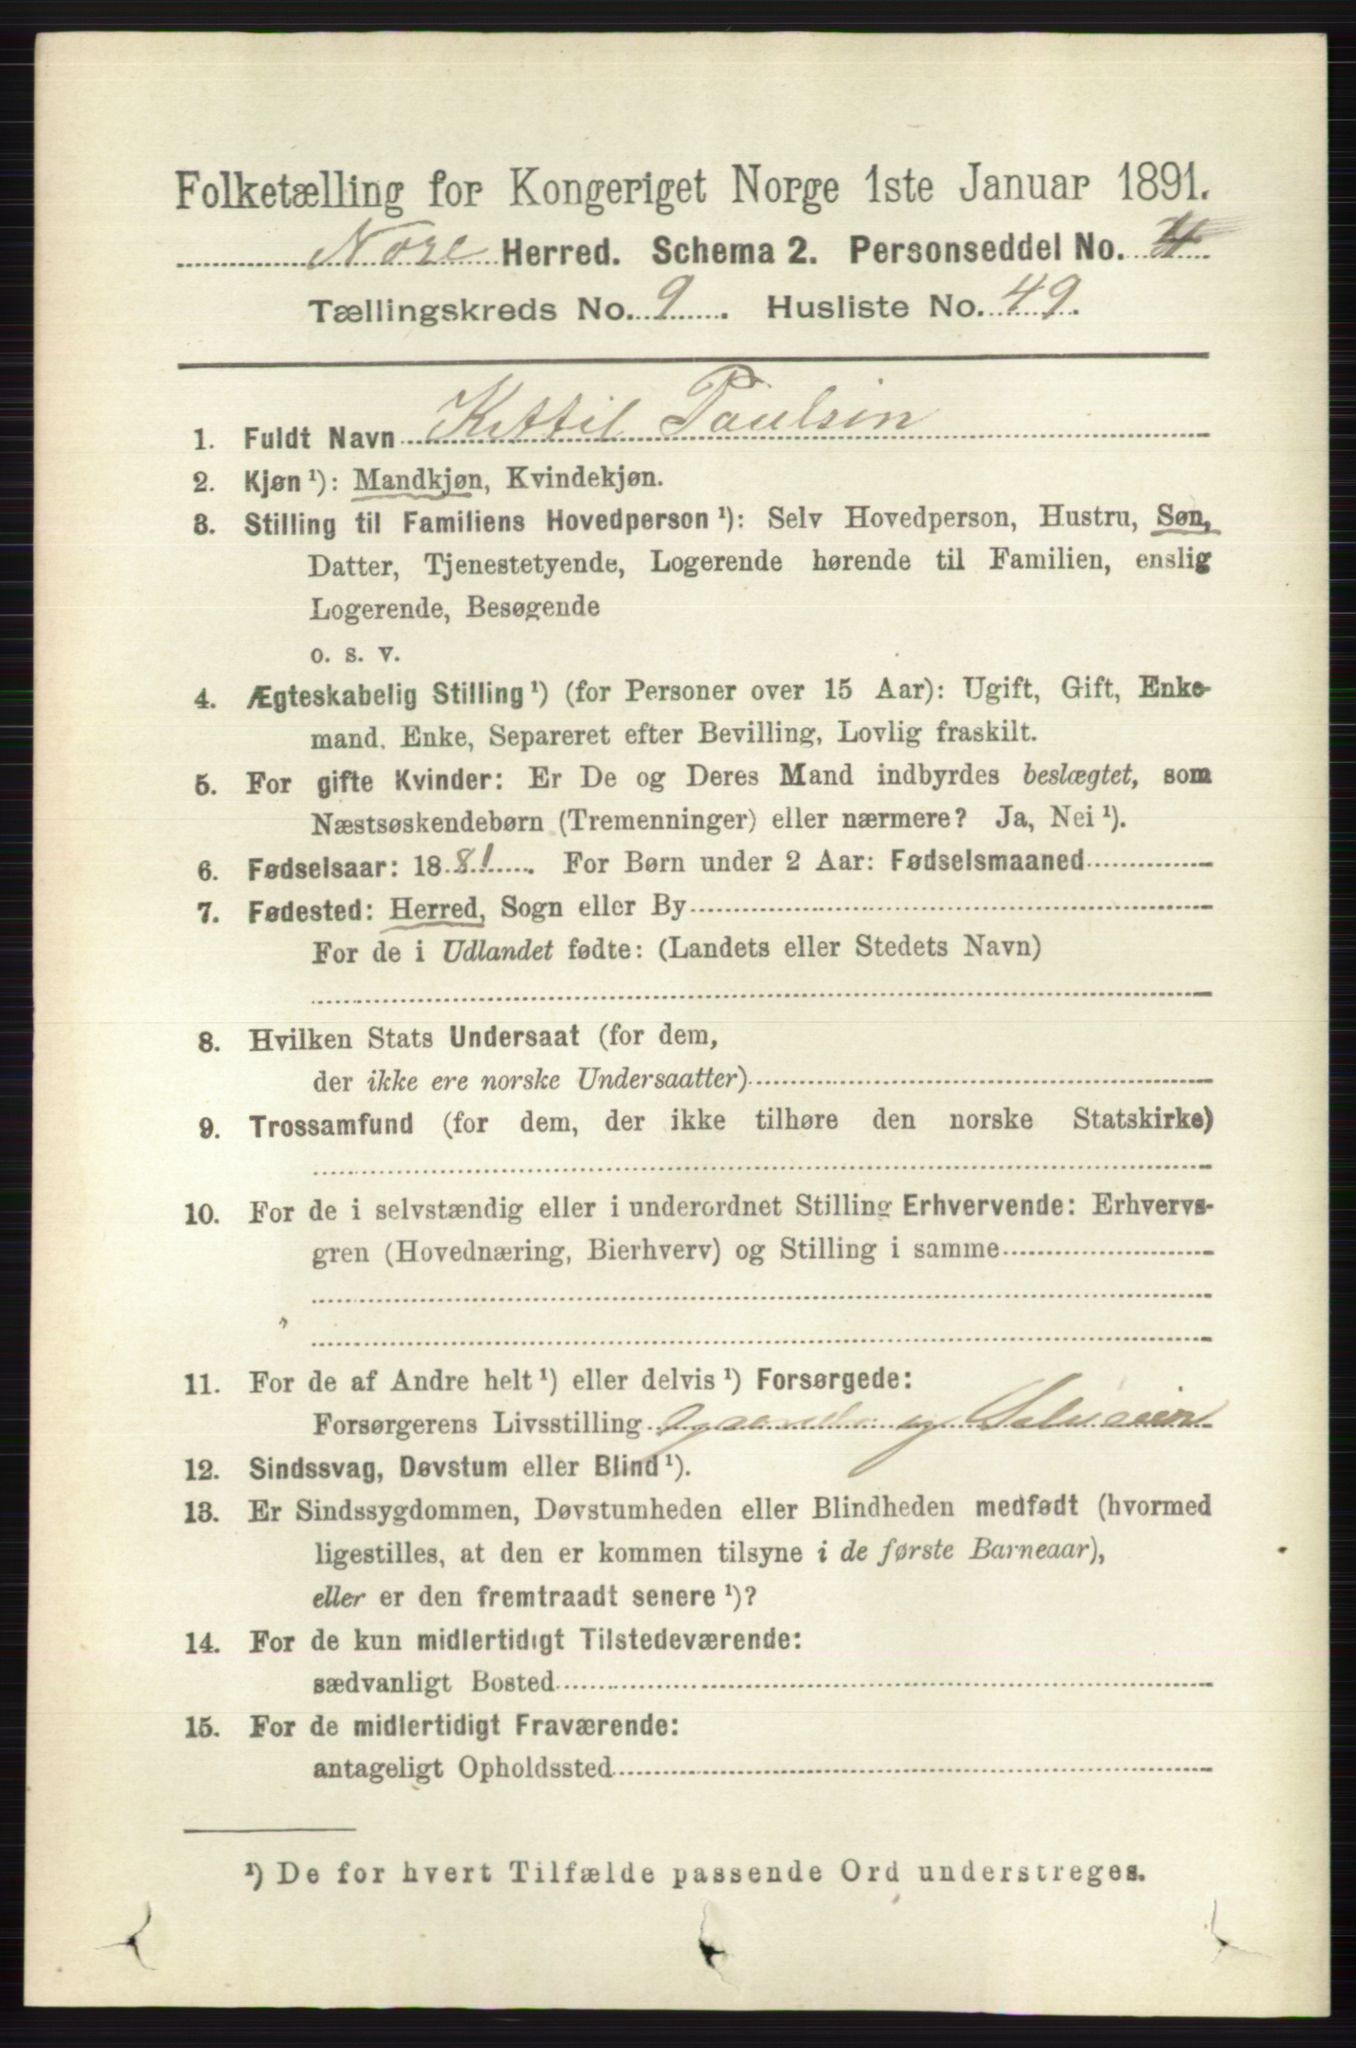 Folketælling for Kongeriget Norge 1ste Januar 1891.
Nore Herred. Schema 2. Personseddel No. 4
Tællingskreds No. 9. Husliste No. 49.
1. Fuldt Navn Kittil Paulsin
2. Kjøn¹): Mandkjøn, Kvindekjøn.
3. Stilling til Familiens Hovedperson¹): Selv Hovedperson, Hustru, Søn,
Datter, Tjenestetyende, Logerende hørende til Familien, enslig
Logerende, Besøgende
o. s. v.
4. Ægteskabelig Stilling¹) (for Personer over 15 Aar): Ugift, Gift, Enke-
mand, Enke, Separeret efter Bevilling, Lovlig fraskilt.
5. For gifte Kvinder: Er De og Deres Mand indbyrdes beslægtet, som
Næstsøskendebørn (Tremenninger) eller nærmere? Ja, Nei¹).
6. Fødselsaar: 1881. For Børn under 2 Aar: Fødselsmaaned
7. Fødested: Herred, Sogn eller By
For de i Udlandet fødte: (Landets eller Stedets Navn)
8. Hvilken Stats Undersaat (for dem,
der ikke ere norske Undersaatter)
9. Trossamfund (for dem, der ikke tilhøre den norske Statskirke)
10. For de i selvstændig eller i underordnet Stilling Erhvervende: Erhvervs-
gren (Hovednæring, Bierhverv) og Stilling i samme
11. For de af Andre helt¹) eller delvis¹) Forsørgede:
Forsørgerens Livsstilling og
12. Sindssvag, Døvstum eller Blind¹).
13. Er Sindssygdommen, Døvstumheden eller Blindheden medfødt (hvormed
ligestilles, at den er kommen tilsyne i de første Barneaar),
eller er den fremtraadt senere¹)?
14. For de kun midlertidigt Tilstedeværende:
sædvanligt Bosted
15. For de midlertidigt Fraværende:
antageligt Opholdssted
¹) De for hvert Tilfælde passende Ord understreges.